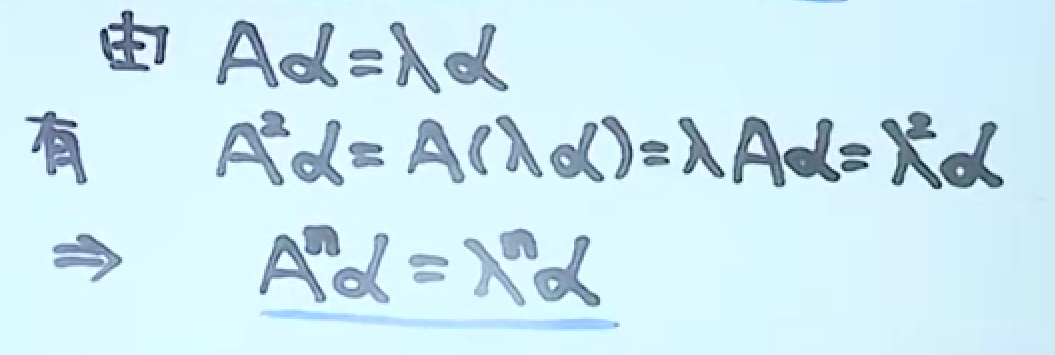 由 Aα=λα
有 A²α=A(λα)=λAα=λ²α
⇒ Aⁿα=λⁿα